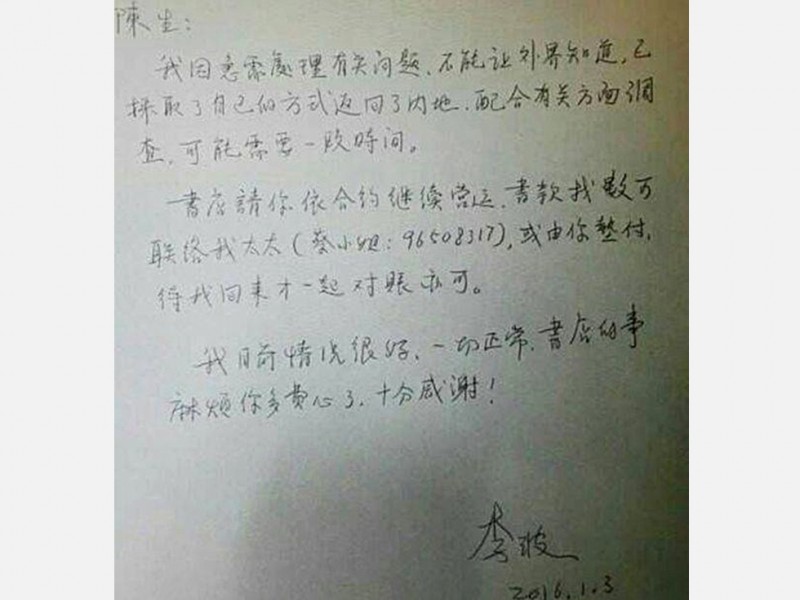 陳生:
我因急需處理有关问题，不能让外界知道，已
採取了自己的方式返回了内地，配合有关方面调
查，可能需要一段時间。
書店請你依合約继续营运，書款找數可
联络我太太(蔡小姐:96508317)，或由你墊付，
待我回来才一起对賬亦可。
我目前情况很好，一切正常，書店的事
麻烦你多費心了，十分感谢!
李波
2016.1.3